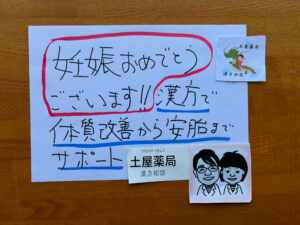 妊娠おめでとう
ございます!!漢方で
体質改善から安胎まで
サポート
土屋薬局
漢方相談
土屋薬局
漢方相談